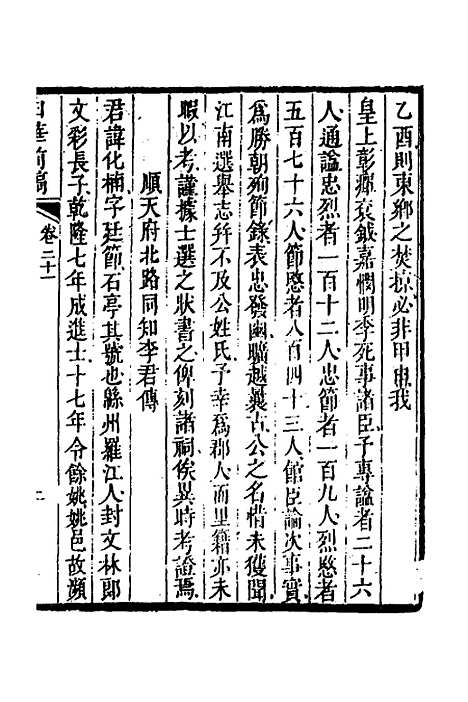 乙酉則東鄉之焚掠必非甲申我
皇上彰癉袞鉞嘉憫明季死事諸臣予專諡者二十六
人通諡忠烈者一百十二人忠節者一百九人烈愍者
五百七十六人節愍者八百四十三人館臣論次事實
爲勝朝殉節錄表忠發幽曠越曩古公之名惜未獲聞
江南選舉志幷不及公姓氏予幸爲郡人而里籍亦未
暇以考謹據士選之狀書之俾刻諸祠俟異時考證焉
順天府北路同知李君傳
君諱化楠字廷節石亭其號也緜州羅江人封文林郎
文彩長子乾隆七年成進士十七年令餘姚姚邑故瀕
白華前稿
卷二十一